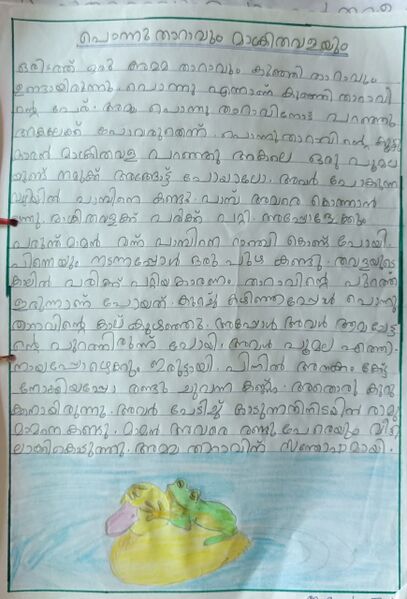 പൊന്നു താറാവും മാക്രിതവളയും
ഒരിടത്ത് ഒരു അമ്മ താറാവും കുഞ്ഞി താറാവും
ഉണ്ടായിരുന്നു. പൊന്നു എന്നാണ് കുഞ്ഞി താറാവി
ന്റെ പേര്. അമ്മ പൊന്നു താറാവിനോട് പറഞ്ഞു
അകലേക്ക് പോവരുതെന്ന്. പൊന്നുതാറാവിന്റെ കൂട്ടു
കാരൻ മാക്രിതവള പറഞ്ഞു അകലെ ഒരു പൂമല
യുണ്ട് നമുക്ക് അങ്ങോട്ട് പോയാലോ. അവർ പോകുന്ന
വഴിയിൽ പാമ്പിനെ കണ്ടു. പാമ്പ് അവരെ കൊത്താൻ
വന്നു മാക്രിതവളക്ക് പരിക്ക് പറ്റി. അപ്പോളേക്കും
പരുന്ത് മാമൻ വന്ന് പാമ്പിനെ റാഞ്ചി കൊണ്ട് പോയി.
പിന്നെയും നടന്നപ്പോൾ ഒരു പുഴ കണ്ടു. തവളയുടെ
കാലിൽ പരിക്ക് പറ്റിയ കാരണം താറാവിന്റെ പുറത്ത്
ഇരുന്നാണ് പോയത്. കുറച്ച് കഴിഞ്ഞപ്പോൾ പൊന്നു
താറാവിന്റെ കാല് കുഴഞ്ഞു. അപ്പോൾ അവൻ ആമ ചേട്ട
ന്റെ പുറത്തിരുന്ന് പോയി. അവർ പൂമല എത്തി.
അപ്പോഴേക്കും ഇരുട്ടായി. പിന്നിൽ അനക്കം കേട്ട്
നോക്കിയപ്പോ രണ്ടു ചുവന്ന കണ്ണ്. അതൊരു കുറു
ക്കനായിരുന്നു. അവർ പേടിച്ച് ഓടുന്നതിനിടയിൽ രാമു
മാമനെ കണ്ടു. മാമൻ അവരെ രണ്ടു പേരെയും വീട്ടി
ലാക്കികൊടുന്നു. അമ്മ താറാവിന് സന്തോഷമായി.